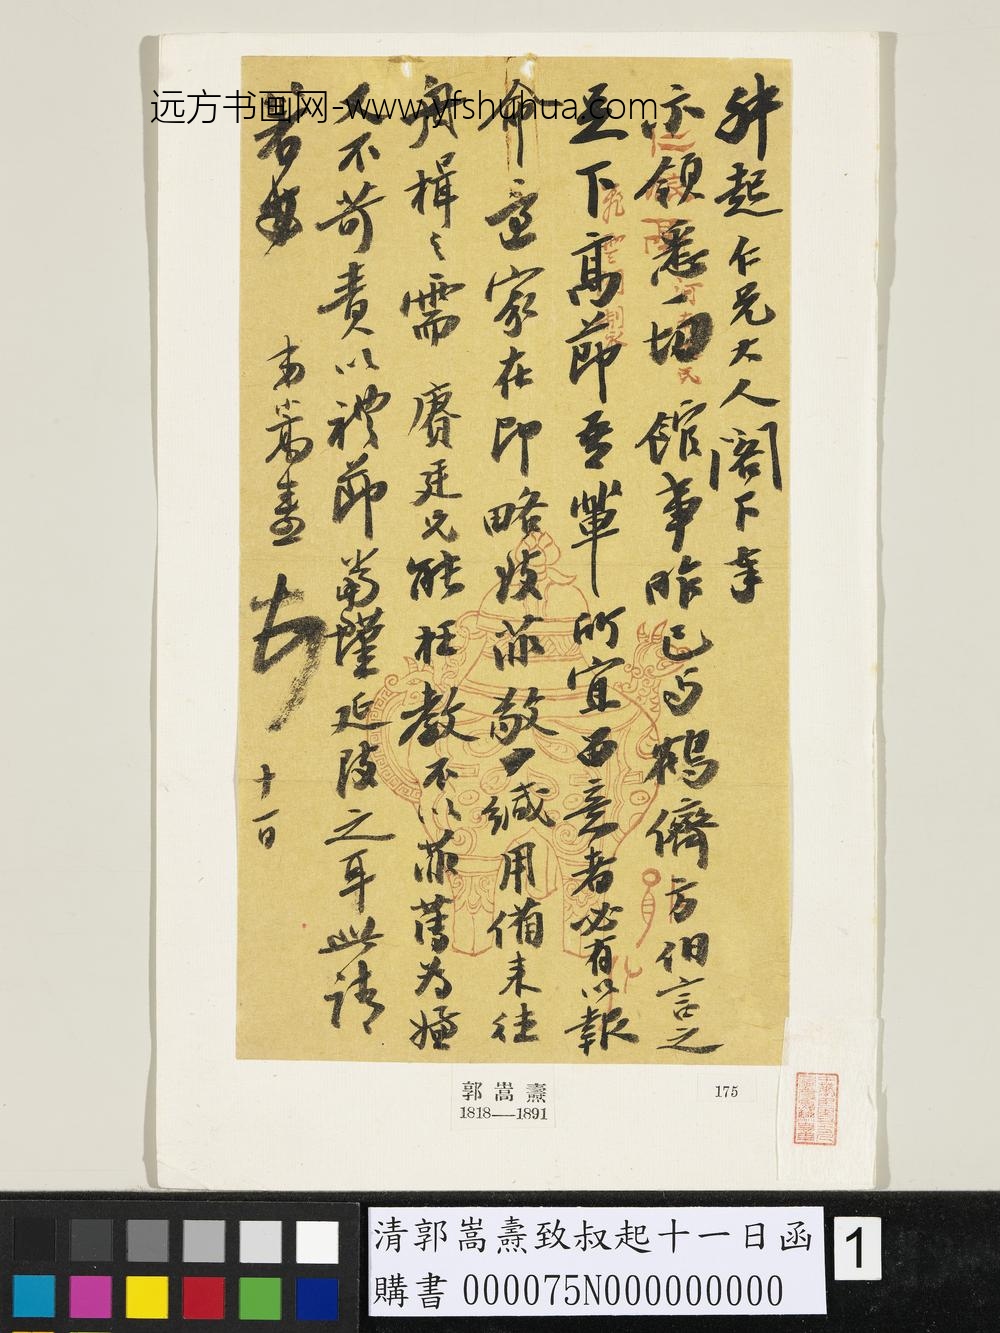 远方书画网-www.yfshuhua.com
叔起仁兄大人阁下幸
示領悉一切館事昨已与鶴儕方伯言之
足下高节吾輩所宜西意者必有以報
命唐家在即略致菲敬一緘用備来往
舟楫之需 賡廷兄能枉教不以菲薄为嫌
又不苛責以禮节當僅延陵之耳此請
箸安
弟嵩燾
十一日
郭嵩燾
1818—1891
175
清郭嵩燾致叔起十一日函
購書 000075N000000000
1